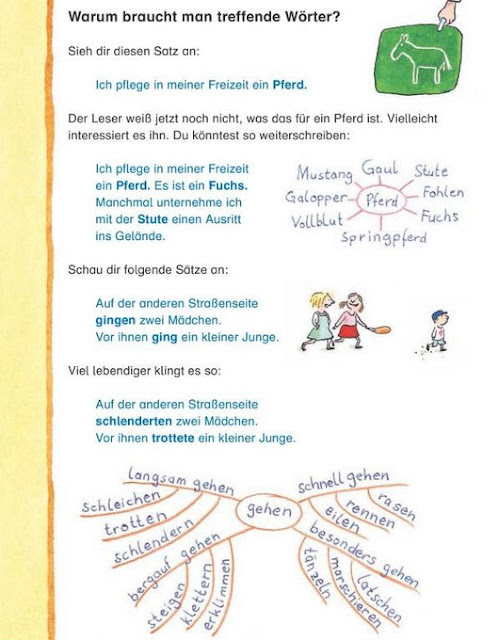 Warum braucht man treffende Wörter?
Sieh dir diesen Satz an:
Ich pflege in meiner Freizeit ein Pferd.
Der Leser weiß jetzt noch nicht, was das für ein Pferd ist. Vielleicht
interessiert es ihn. Du könntest so weiterschreiben:
Ich pflege in meiner Freizeit
ein Pferd. Es ist ein Fuchs.
Manchmal unternehme ich
mit der Stute einen Ausritt
ins Gelände.
Mustang
Gaul
Stute
Galopper
Pferd
Fohlen
Vollblut
Fuchs
Springpferd
Schau dir folgende Sätze an:
Auf der anderen Straßenseite
gingen zwei Mädchen.
Vor ihnen ging ein kleiner Junge.
Viel lebendiger klingt es so:
Auf der anderen Straßenseite
schlenderten zwei Mädchen.
Vor ihnen trottete ein kleiner Junge.
gehen
langsam gehen
schleichen
trotten
schlendern
schnell gehen
eilen
rennen
rasen
bergauf gehen
steigen
klettern
erklimmen
besonders gehen
tänzeln
marschieren
latschen